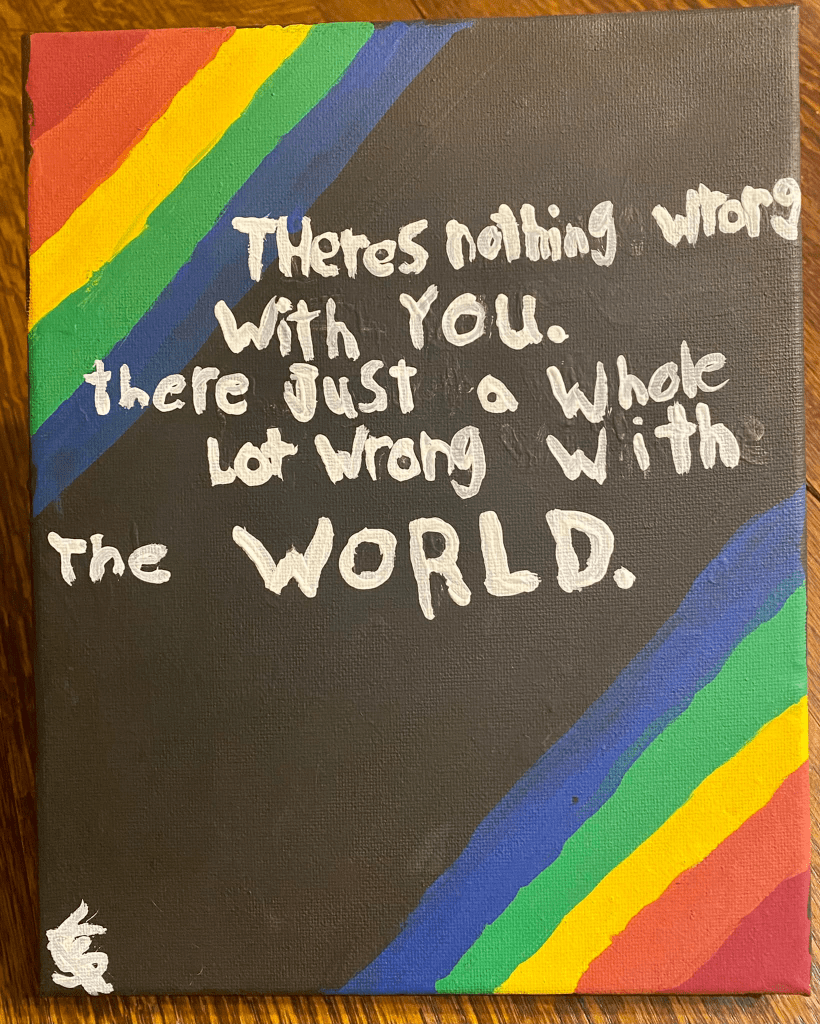 THeres nothing wrong
With YOU.
there Just a Whole
Lot Wrong With
The WORLD.